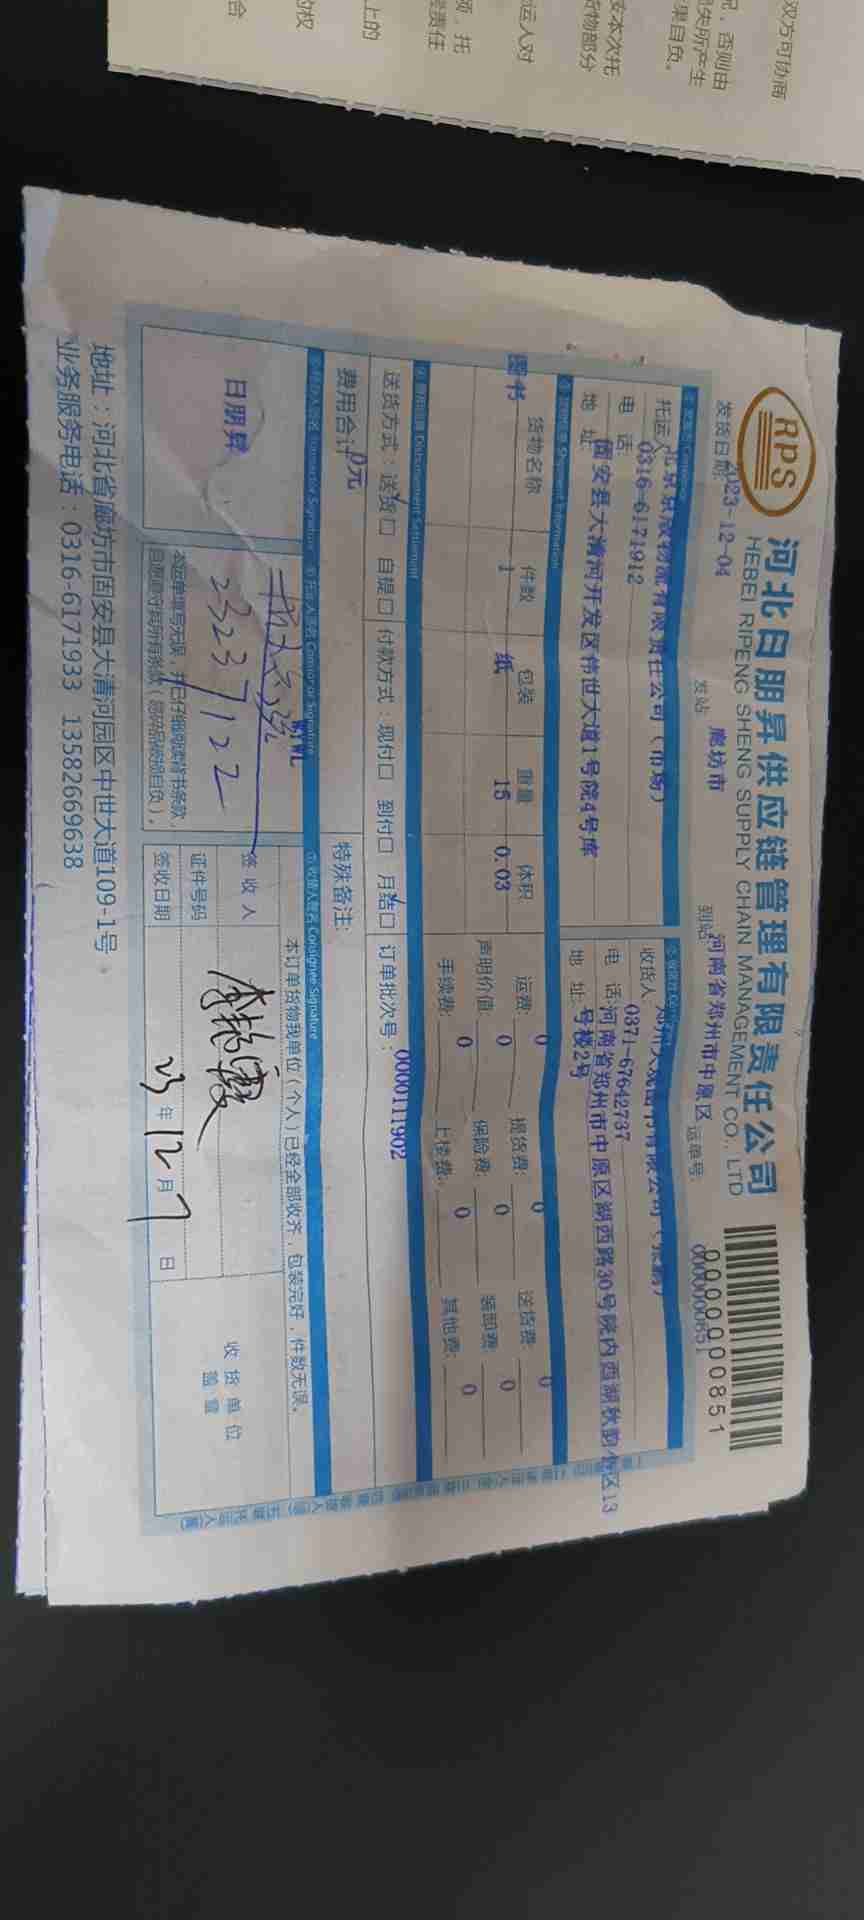 双方可协商
况，否则由
损失所产生
果自负。
按本次托
货物部分
运人对
项，托
上的
的权
合
RPS
河北日朋昇供应链管理有限责任公司
HEBEI RIPENG SHENG SUPPLY CHAIN MANAGEMENT CO., LTD
0000000851
发货日期 2023-12-04 发站 廊坊市 到站 河南省郑州市中原区 运单号: 0000000851
托运人 物流有限责任公司（市场）
电 话 0316-6171912
地 址 固安县大清河开发区伟世大道1号院4号库
收货人 图书有限公司
电 话: 0371-67642737
地 址: 河南省郑州市中原区湖西路30号院内西湖秋韵小区13
号楼2号
货物名称 件数 包装 重量 体积
图书 1 纸 15 0.03
运费: 0 提货费: 0 送货费: 0
声明价值: 0 保险费: 0 装卸费: 0
手续费: 0 上楼费: 0 其他费: 0
Disbursement Settlement
送货方式：送货☑ 自提口 付款方式：现付口 到付口 月结☑ 订单批次号： 0000111902
费用合计 0元 特殊备注:
Consignee Signature
日朋昇
WYWL
本运单填写无误，并已仔细阅读背书条款，
本订单货物我单位（个人）已经全部收齐，包装完好，件数无误。
签 收 人
证件号码
签收日期 23 年 12 月 7 日
收 货 单 位
盖 章
地址：河北省廊坊市固安县大清河园区中世大道109-1号
业务服务电话：0316-6171933 13582669638